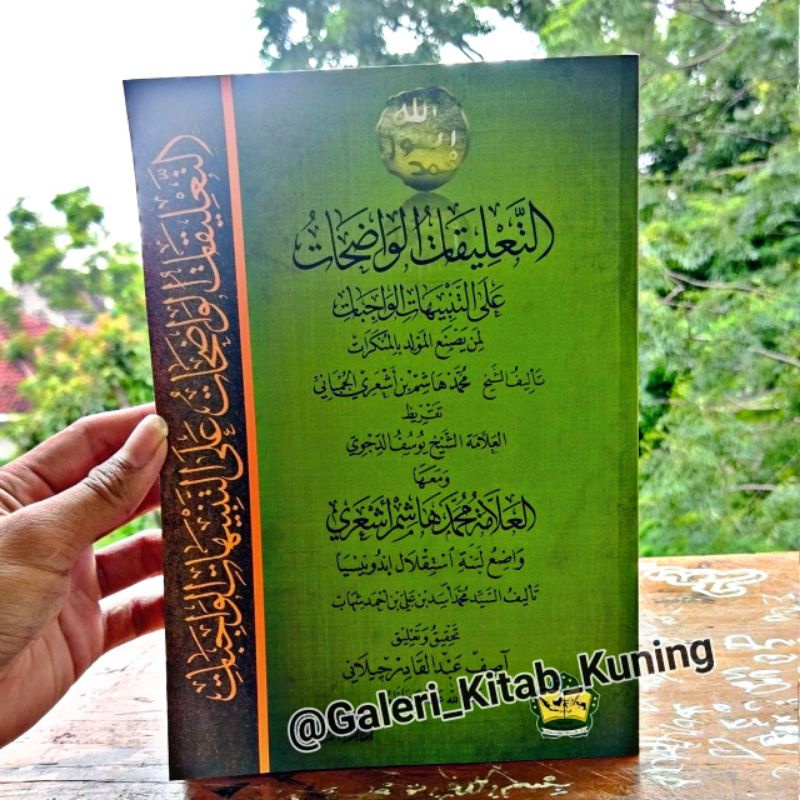 الله
رسول
محمد
التَّعْلِيقَاتُ الوَاضِحَاتُ
عَلَى التَّنْبِيهَاتِ الوَاجِبَاتِ
لِمَنْ يَصْنَعُ المَوْلِدَ بِالمُنْكَرَاتِ
تَأليفُ الشَّيْخِ مُحَمَّد هَاشِم بن أَشْعَرِي الجُمْبَانِي
تَقْرِيظ
العَلَّامَة الشَّيْخ يُوسُف الدِّجْوِي
وَمَعَهَا
العَلَّامَةُ مُحَمَّد هَاشِم أَشْعَرِي
وَاضِعُ لَبِنَةِ اسْتِقْلَالِ إِنْدُونِيسِيَا
تَأليف السَّيِّد مُحَمَّد أَسَد بن عَلِي بن أَحْمَد شِهَاب
تَحْقِيقُ وَتَعْلِيق
آصِف عَبْد القَادِر جِيلَانِي
التَّعْلِيقَاتُ الوَاضِحَاتُ عَلَى التَّنْبِيهَاتِ الوَاجِبَاتِ
@Galeri_Kitab_Kuning